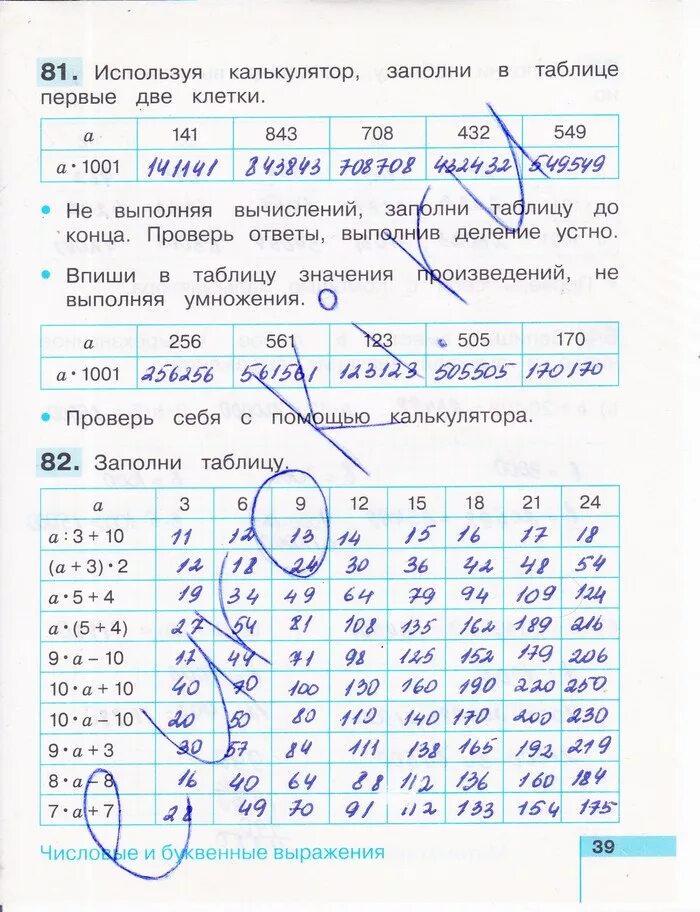 81. Используя калькулятор, заполни в таблице
первые две клетки.
a 141 843 708 432 549
a · 1001 141141 843843 708708 432432 549549
• Не выполняя вычислений, заполни таблицу до
конца. Проверь ответы, выполнив деление устно.
• Впиши в таблицу значения произведений, не
выполняя умножения.
a 256 561 123 505 170
a · 1001 256256 561561 123123 505505 170170
• Проверь себя с помощью калькулятора.
82. Заполни таблицу.
a 3 6 9 12 15 18 21 24
a : 3 + 10 11 12 13 14 15 16 17 18
(a + 3) · 2 12 18 24 30 36 42 48 54
a · 5 + 4 19 34 49 64 79 94 109 124
a · (5 + 4) 27 54 81 108 135 162 189 216
9 · a – 10 17 44 71 98 125 152 179 206
10 · a + 10 40 70 100 130 160 190 220 250
10 · a – 10 20 50 80 110 140 170 200 230
9 · a + 3 30 57 84 111 138 165 192 219
8 · a – 8 16 40 64 88 112 136 160 184
7 · a + 7 28 49 70 91 112 133 154 175
Числовые и буквенные выражения 39